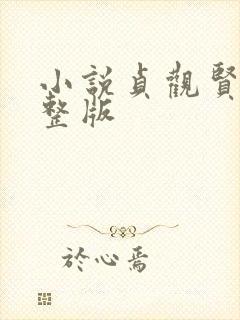 小説貞觀賢
整版
於心焉